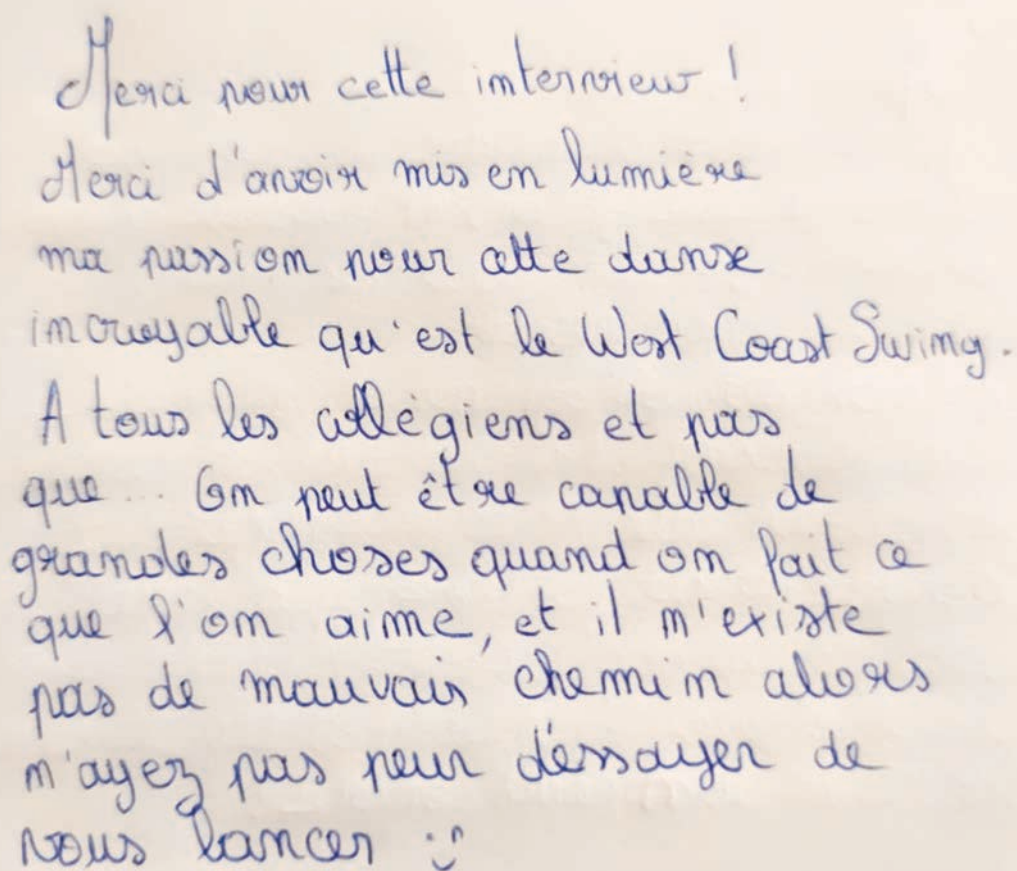 Merci pour cette interview !
Merci d'avoir mis en lumière
ma passion pour cette danse
incroyable qu'est le West Coast Swing.
A tous les collègiens et pas
que... On peut être capable de
grandes choses quand on fait ce
que l'on aime, et il n'existe
pas de mauvais chemin alors
n'ayez pas peur d'essayer de
vous lancer :)